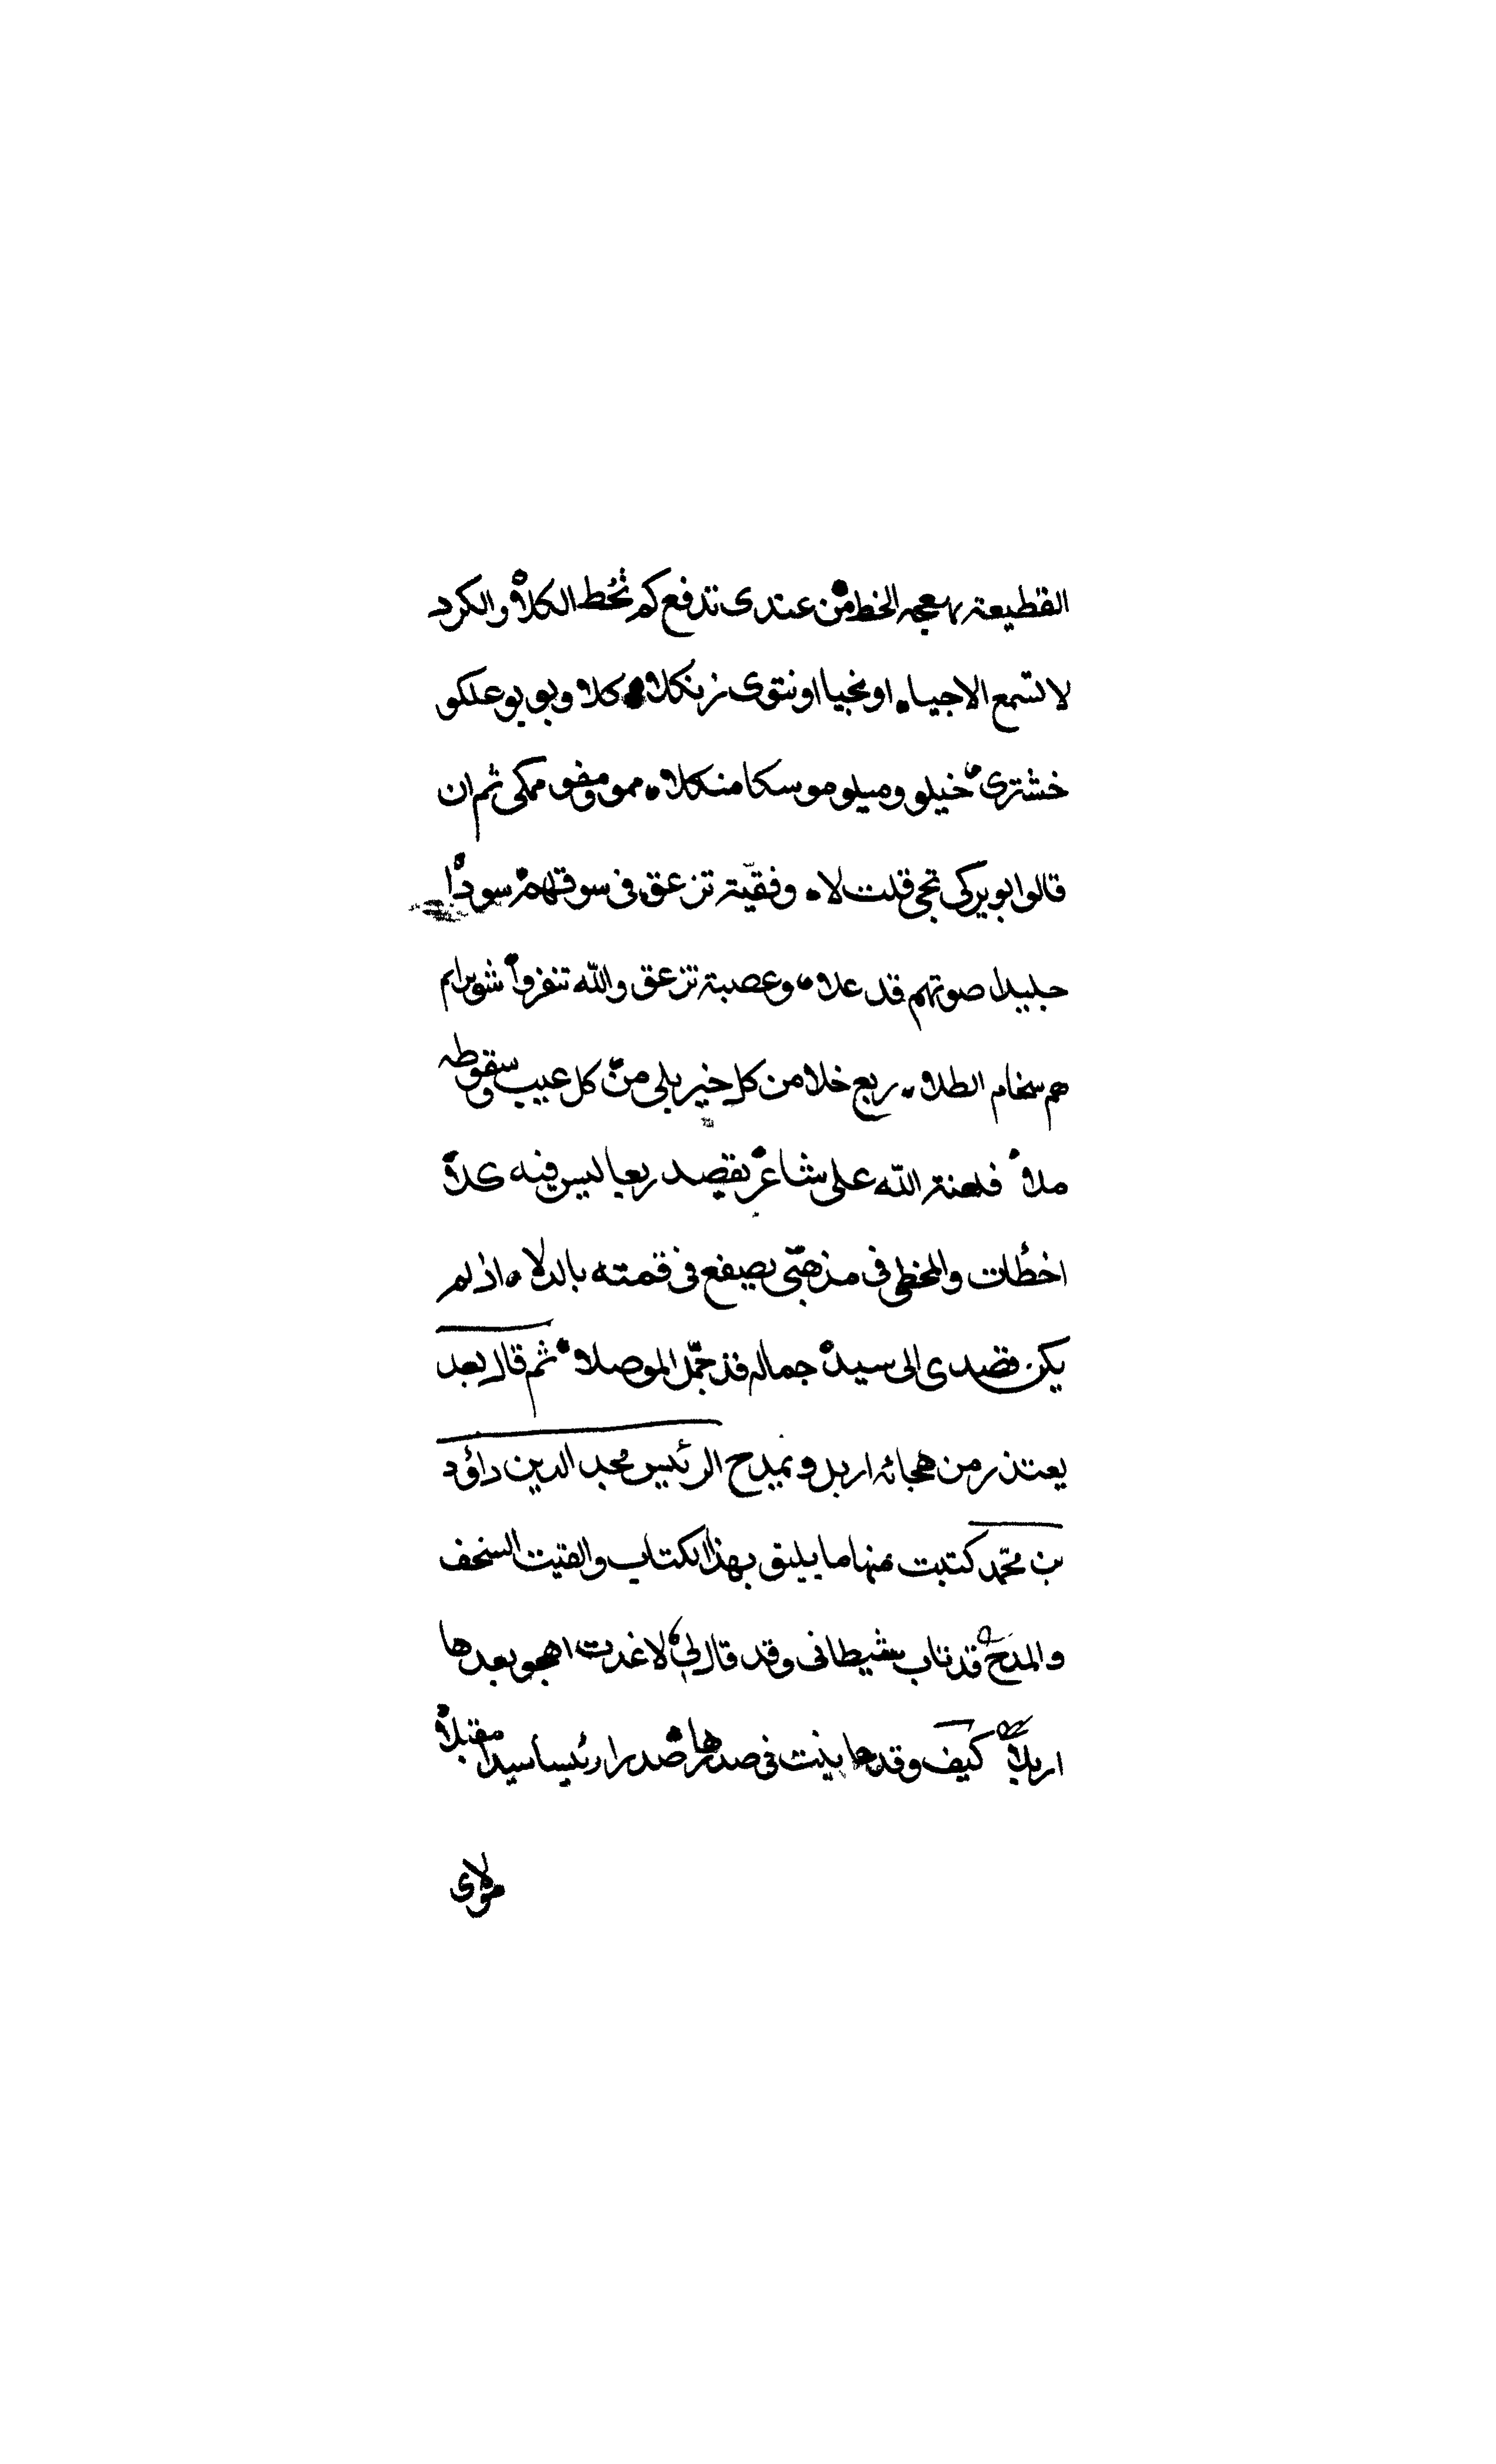 القطيعة بهعجه الخط من عندى تدفع كم تحط الكلا والكرد
لا تسمع الا جياه او نجيا او نتوى زنكلاه كلا وبوبو علكو
خشترى خيلو وميلو موسكا منكلاه ممو ومقو ممكى ثم ان
قالوا بويركى تجى قلت لا وفقية تزعق فى سوقهم سوداً
جليدا صوتهم قد علا وعصبة تزعق والله تنفروا شوبرام
هم سخام الطلاء ربع خلا من كل خير بلى من كل عيب وسقوطه
ملا فلعنة الله على شاعر يقصد ربعا ليس فيه كلا
اخطأت والمخطى فى مذهبى يصفع فى قمته بالدلا اذ لم
يكن قصدى الى سيد جماله قد جمل الموصلا ثم قال بعد
يعتذر من هجائه اربل ويمدح الرئيس مجد الدين داؤد
بن محمد كتبت منها ما يليق بهذا الكتاب والقيت السخف
والمدح قد تاب شيطانى وقد قال لى لا عدت اهجو بعدها
اربلا كيف وقد عاينت فى صدرها صدرا رئيسا سيدا مقبلا
مولاى